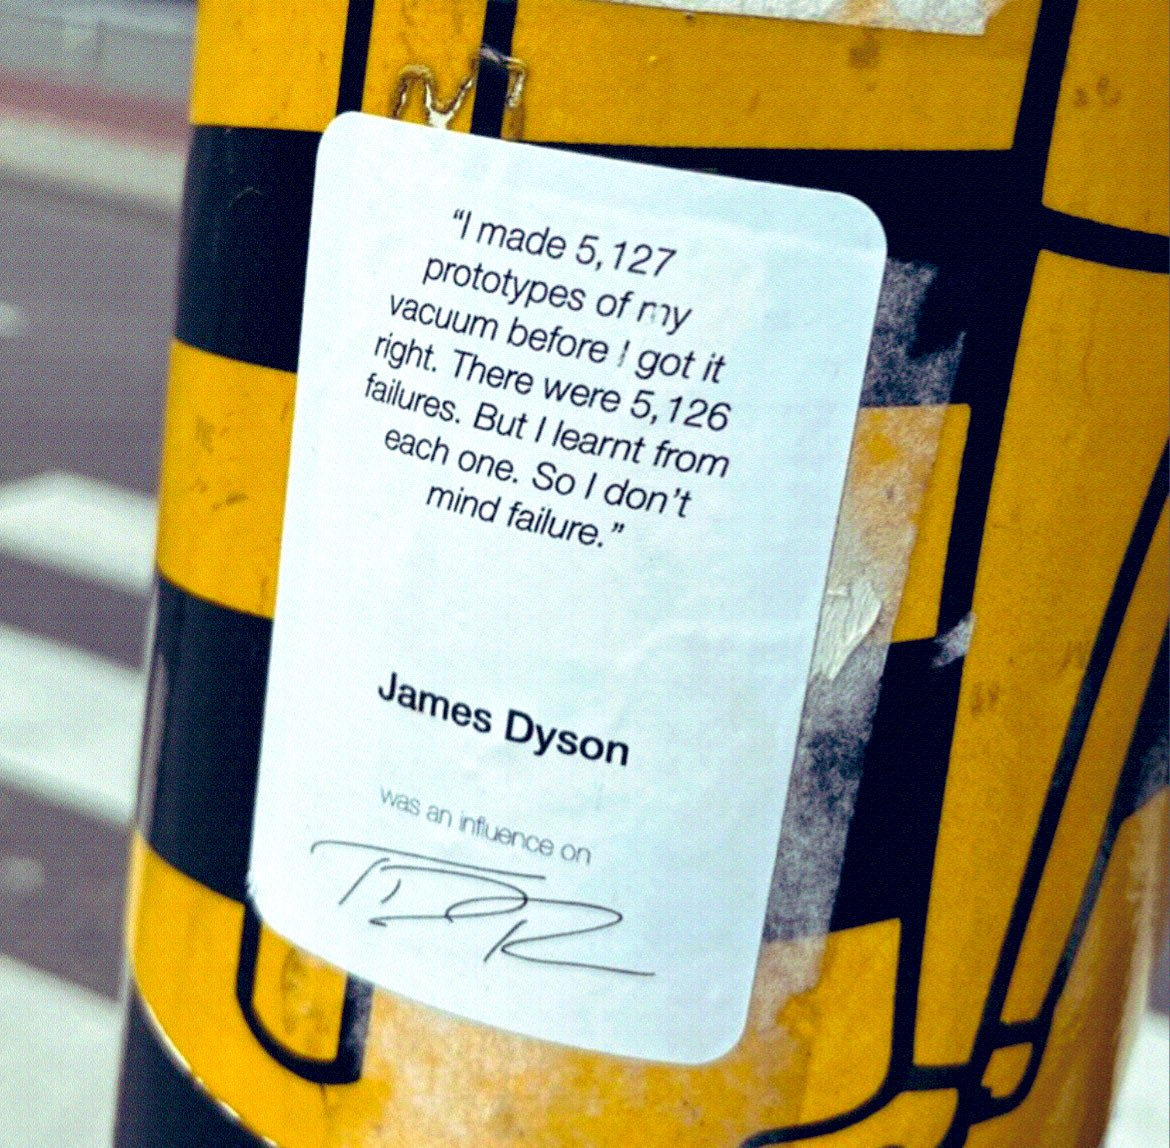 “I made 5,127
prototypes of my
vacuum before I got it
right. There were 5,126
failures. But I learnt from
each one. So I don’t
mind failure.”
James Dyson
was an influence on
TDR